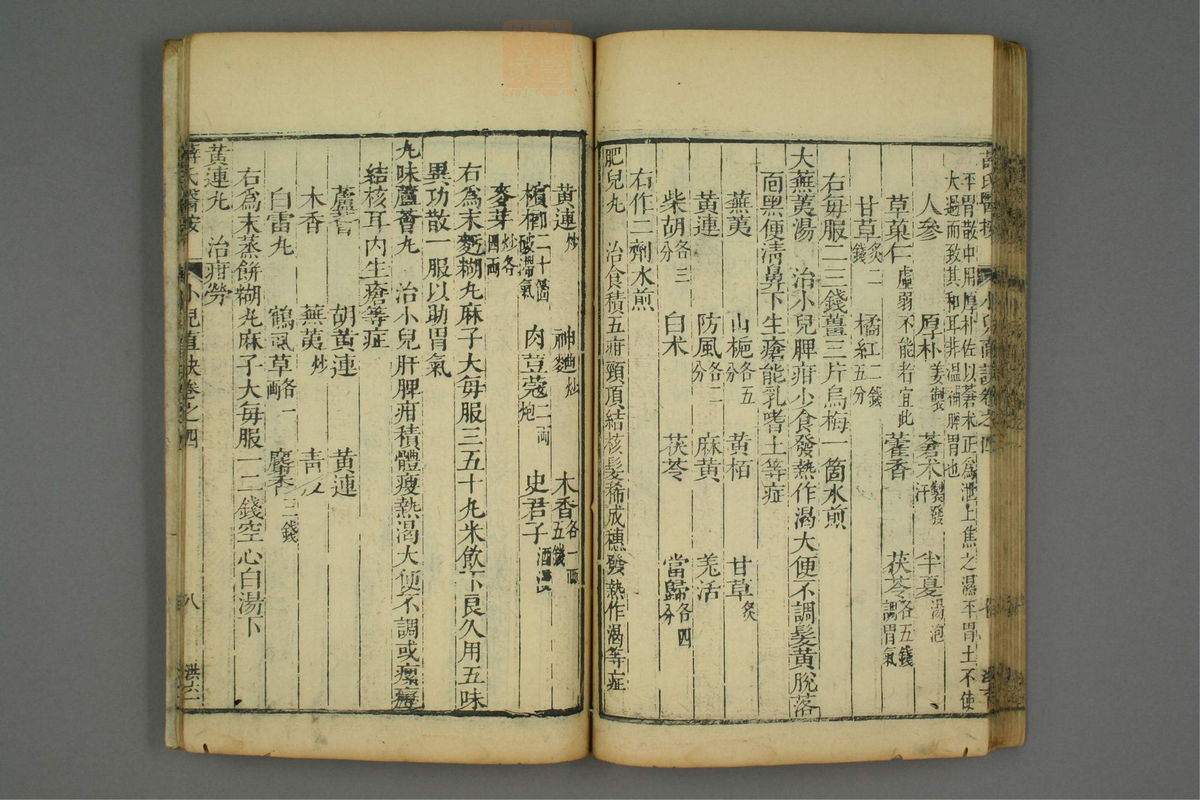 平胃散中用厚朴佐以蒼朮正為泄上焦之濕平胃土不使
大過而致其和耳非温補脾胃也
人參 厚朴姜製 蒼朮製發汗 半夏湯泡
草菓仁虛弱不能者宜此 藿香 茯苓各五錢調胃氣
甘草炙二錢 橘紅二錢五分
右每服二三錢薑三片烏梅一箇水煎
大蕪荑湯 治小兒脾疳少食發熱作渴大便不調髮黃脫落
面黑便清鼻下生瘡能乳嗜土等症
蕪荑 山梔各五分 黃栢 甘草炙
黃連 防風各二分 麻黃 羗活
柴胡各三分 白朮 茯苓 當歸各四分
右作二劑水煎
肥兒丸 治食積五疳頸項結核髮稀成穗發熱作渴等症
黃連炒 神麯炒 木香各一兩五錢
檳榔二十箇破滯氣 肉荳蔻二兩炮 史君子酒浸
麥芽炒各四兩
右為末麪糊丸麻子大每服三五十丸米飲下良久用五味
異功散一服以助胃氣
九味蘆薈丸 治小兒肝脾疳積體瘦熱渴大便不調或瘰癧
結核耳內生瘡等症
蘆薈 胡黃連 黃連
木香 蕪荑炒 青皮
白雷丸 鶴虱草各一兩 麝香三錢
右為末蒸餅糊丸麻子大每服一二錢空心白湯下
黃連丸 治疳勞
薛氏醫按 小兒直訣卷之四 八